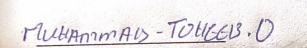 MUHAMMAD - TOHEEB.O